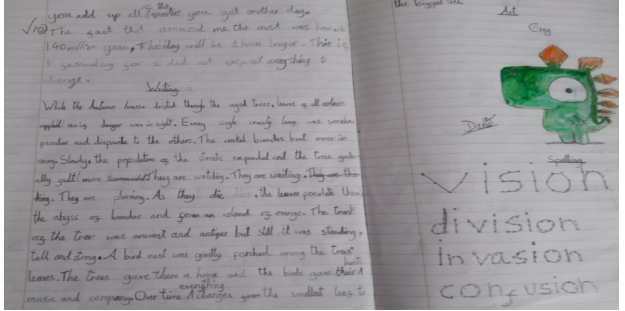 you add up all the you get another day.
10 The fact that amazed me the most was how in
140 million years, the day will be 1 hour longer. This is
for I did not expect anything to
change.
Writing
While the Autumn leaves drifted through the aged trees, leaves of all colours
as danger was in sight. Every single crusty leaf was somehow
peculiar and disparate to the others. The wooded branches bent over in
Slowly, the population of the forests expanded and the trees gradu-
ally felt more surrounded. They are watching. They are waiting. They are thin
king. They are planning. As they die, the leaves percolate through
the abyss of and form an island of orange. The trunk
of the tree was ancient and antique but still it was standing,
tall and strong. A bird nest was gently perched among the trees'
leaves. The trees gave them a home and the birds gave their
music and company. Over time everything changes from the smallest leaf to
the biggest tree.
Art
Dino
Spelling
vision
division
invasion
confusion